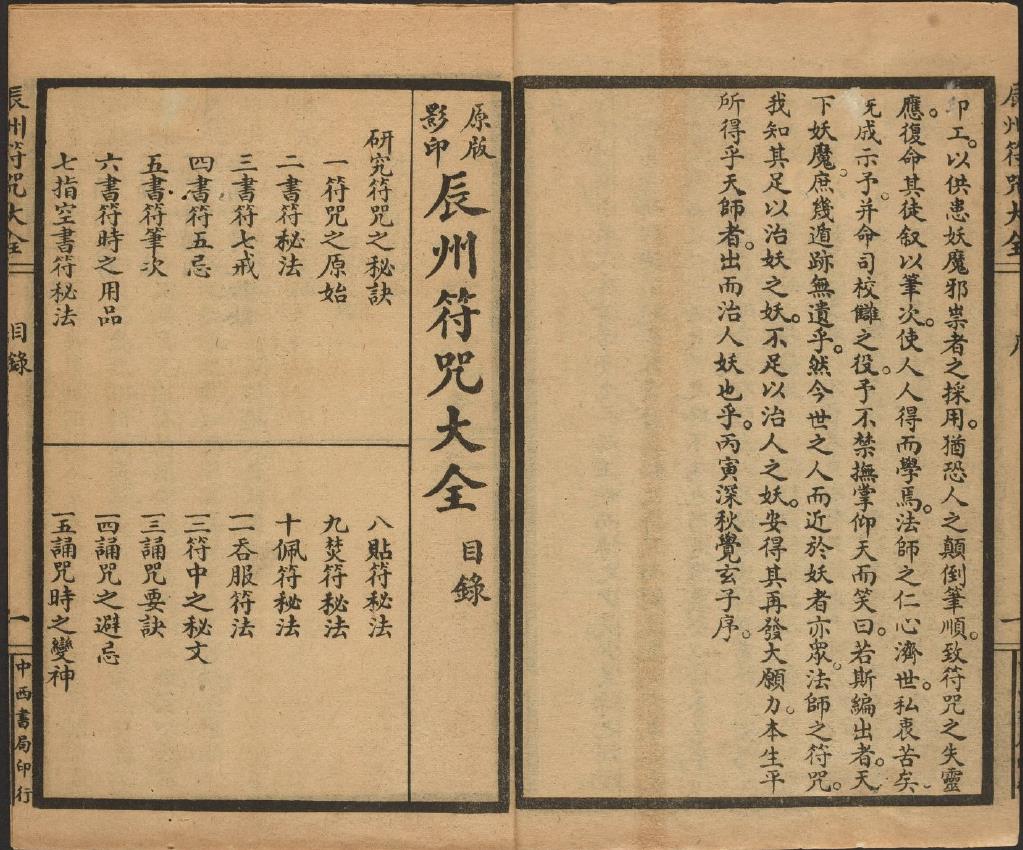 印工。以供患妖魔邪祟者之採用。猶恐人之顛倒筆順。致符咒之失靈
應。復命其徒叙以筆次。使人人得而學焉。法師之仁心濟世。私衷苦矣
既成示予。并命司校讎之役。予不禁撫掌仰天而笑曰。若斯編出者。天
下妖魔。庶幾遁跡無遺乎。然今世之人而近於妖者亦眾。法師之符咒。
我知其足以治妖之妖。不足以治人之妖。安得其再發大願力。本生平
所得乎天師者。出而治人妖也乎。丙寅深秋覺玄子序。
原版影印 辰州符咒大全 目錄
研究符咒之秘訣
一符咒之原始
二書符秘法
三書符七戒
四書符五忌
五書符筆次
六書符時之用品
七指空書符秘法
八貼符秘法
九焚符秘法
十佩符秘法
一一吞服符法
一二符中之秘文
一三誦咒要訣
一四誦咒之避忌
一五誦咒時之變神
辰州符咒大全
目錄
一
中西書局印行
辰州符咒大全
一